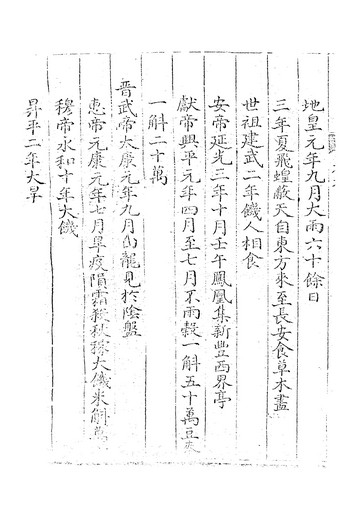 地皇元年九月大雨六十餘日
三年夏飛蝗蔽天自東方來至長安食草木盡
世祖建武二年饑人相食
安帝延光三年十月壬午鳳凰集新豐西界亭
獻帝興平元年四月至七月不雨穀一斛五十萬豆麥
一斛二十萬
晉武帝太康元年九月白龍見於陰盤
惠帝元康元年七月旱疫隕霜殺秋稼大饑米斛萬
穆帝永和十年大饑
昇平二年大旱